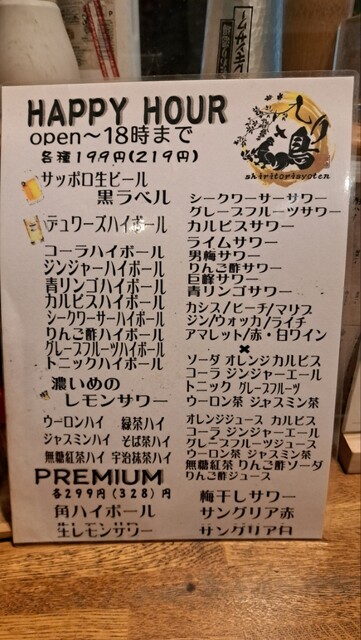 HAPPY HOUR
open～18時まで
各種199円(219円)
しり鳥
shiritorisyoten
サッポロ生ビール
黒ラベル
デュワーズハイボール
コーラハイボール
ジンジャーハイボール
青リンゴハイボール
カルピスハイボール
シークワーサーハイボール
りんご酢ハイボール
グレープフルーツハイボール
トニックハイボール
濃いめの
レモンサワー
ウーロンハイ 緑茶ハイ
ジャスミンハイ そば茶ハイ
無糖紅茶ハイ 宇治抹茶ハイ
シークワーサーサワー
グレープフルーツサワー
カルピスサワー
ライムサワー
男梅サワー
りんご酢サワー
巨峰サワー
青リンゴサワー
カシス/ピーチ/マリブ
ジン/ウォッカ/ライチ
アマレット/赤・白ワイン
×
ソーダ オレンジ カルピス
コーラ ジンジャーエール
トニック グレープフルーツ
ウーロン茶 ジャスミン茶
オレンジジュース カルピス
コーラ ジンジャーエール
グレープフルーツジュース
ウーロン茶 ジャスミン茶
無糖紅茶 りんご酢ソーダ
りんご酢ジュース
PREMIUM
各299円(328)円
角ハイボール
生レモンサワー
梅干しサワー
サングリア赤
サングリア白